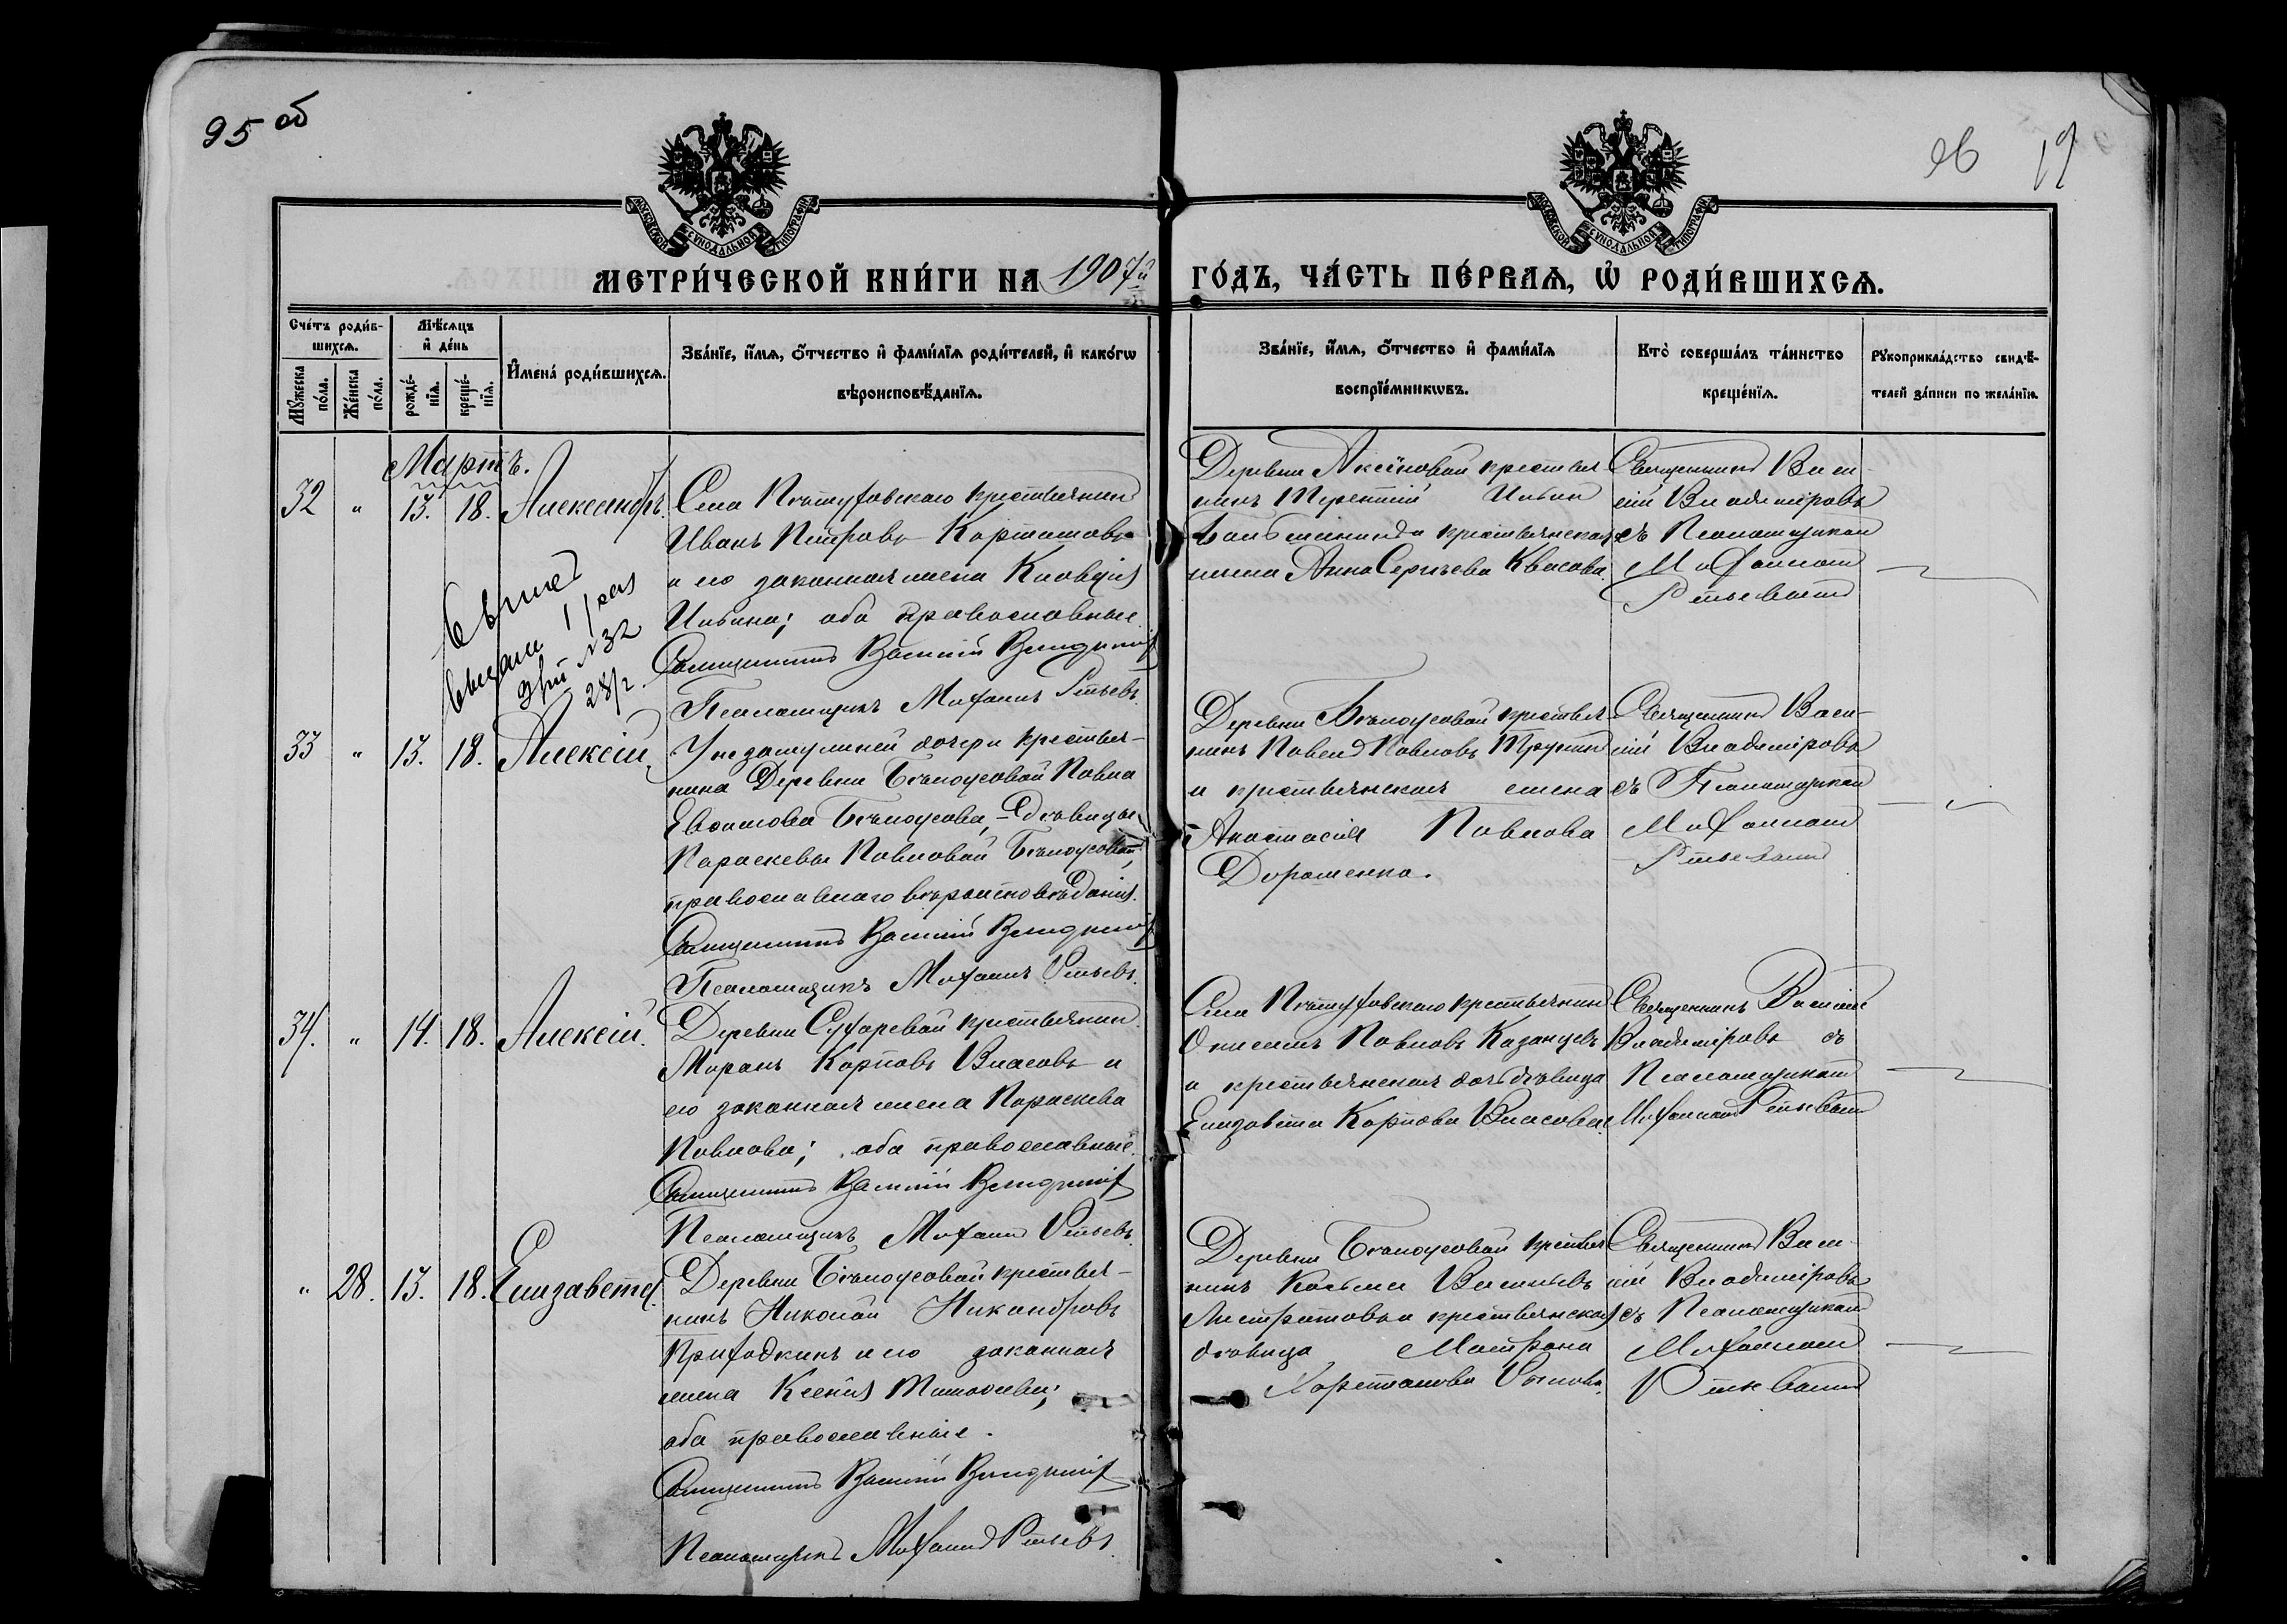 95 об
96
19
МОСКОВСКОЙ СУНОДАЛЬНОЙ ТИПОГРАФІИ
МОСКОВСКОЙ СУНОДАЛЬНОЙ ТИПОГРАФІИ
МЕТРИ́ЧЕСКОЙ КНИ́ГИ НА 1907й ГО́ДЪ, ЧА́СТЬ ПЕ́РВАѦ, Ѡ҆ РОДИ́ВШИХСѦ.
Сче́тъ роди́в-
шихсѧ.
Мꙋ́жеска по́ла.
Же́нска по́ла.
Мѣ́сѧцъ
и҆ де́нь
рожде́-
нїѧ.
креще́-
нїѧ.
И҆мена́ роди́вшихсѧ.
Зва́нїе, и҆́мѧ, ѻ҆́тчество и҆ фами́лїѧ роди́телей, и҆ како́гѡ
вѣроисповѣ́данїѧ.
Зва́нїе, и҆́мѧ, ѻ҆́тчество и҆ фами́лїѧ
воспрїе́мникѡвъ.
Кто̀ соверша́лъ та́инство
креще́нїѧ.
Рꙋкоприкла́дство свидѣ́-
телей за́писи по жела́нїю.
Мартъ.
32 " 13. 18. Александръ.
Села Пѣтуховскаго крестьянин
Иванъ Петровъ Карташовъ
и его законная жена Клавдія
Ильина; оба православные.
Священникъ Василій Владиміровъ
Псаломщикъ Михаилъ Рѣпьевъ.
Деревни Аксеновой крестья
нинъ Терентій Ильин
и крестьянская
жена Анна Сергѣева Квасова.
Священникъ Васи-
лій Владиміровъ
съ Псаломщикомъ
Михаиломъ
Рѣпьевымъ
N 32
33 " 13. 18. Алексій.
У незамужней дочери крестья-
нина Деревни Бѣлоусовой Павла
Евдокимова Бѣлоусова, дѣвицы
Параскевы Павловой Бѣлоусовой,
православнаго вѣроисповѣданія.
Священникъ Василій Владиміровъ
Псаломщикъ Михаилъ Рѣпьевъ.
Деревни Бѣлоусовой крестья-
нинъ Павелъ Павловъ
и крестьянская жена
Анастасія Павлова
Дорошенко.
Священникъ Васи-
лій Владиміровъ
съ Псаломщикомъ
Михаиломъ
Рѣпьевымъ
34. " 14. 18. Алексій.
Деревни Сухаревой крестьянин
Карповъ Власовъ и
его законная жена Параскева
Павлова; оба православные.
Священникъ Василій Владиміровъ
Псаломщикъ Михаилъ Рѣпьевъ.
Села Пѣтуховскаго крестьянин
Павловъ Казанцевъ
и крестьянская дочь дѣвица
Елизавета Карпова Власова.
Священникъ Василій
Владиміровъ съ
Псаломщикомъ
Михаиломъ Рѣпьевымъ
" 28. 13. 18. Елизавета.
Деревни Бѣлоусовой крестья-
нинъ Николай Никандровъ
Приходкинъ и его законная
жена Ксенія Тимофеева;
оба православные.
Священникъ Василій Владиміровъ
Псаломщикъ Михаилъ Рѣпьевъ.
Деревни Бѣлоусовой крестья
нинъ Косьма Васильевъ
Листратовъ и крестьянская
дѣвица Матрона
Харитонова
Священникъ Васи-
лій Владиміровъ
съ Псаломщикомъ
Михаиломъ
Рѣпьевымъ